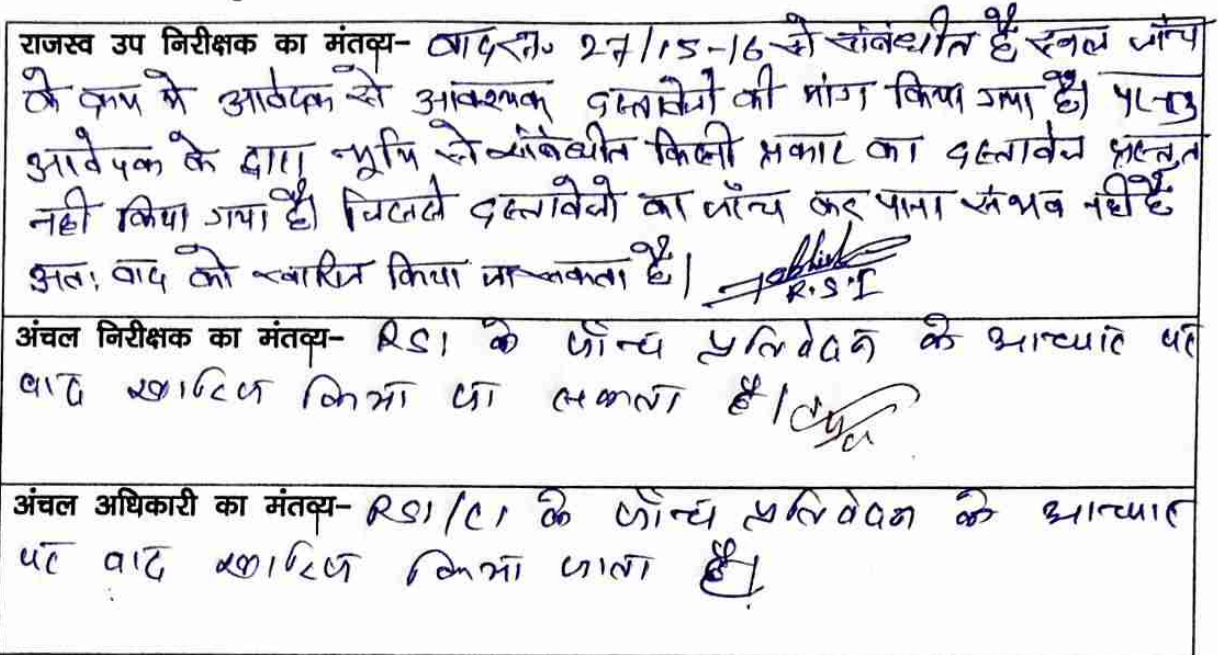 राजस्व उप निरीक्षक का मंतव्य- वाद सं० 27/15-16 से संबंधीत है स्थल जाँच
के क्रम मे आवेदक से आवश्यक दस्तावेजो की मांग किया गया है। परन्तु
आवेदक के द्वारा भूमि से संबंधीत किसी प्रकार का दस्तावेज प्रस्तुत
नही किया गया है। जिससे दस्तावेजो का जाँच कर पाना संभव नही है
अतः वाद को खारिज किया जा सकता है।
R.S.I
अंचल निरीक्षक का मंतव्य- RSI के जाँच प्रतिवेदन के आधार पर
वाद खारिज किया जा सकता है।
अंचल अधिकारी का मंतव्य- RSI/CI के जाँच प्रतिवेदन के आधार
पर वाद खारिज किया जाता है।